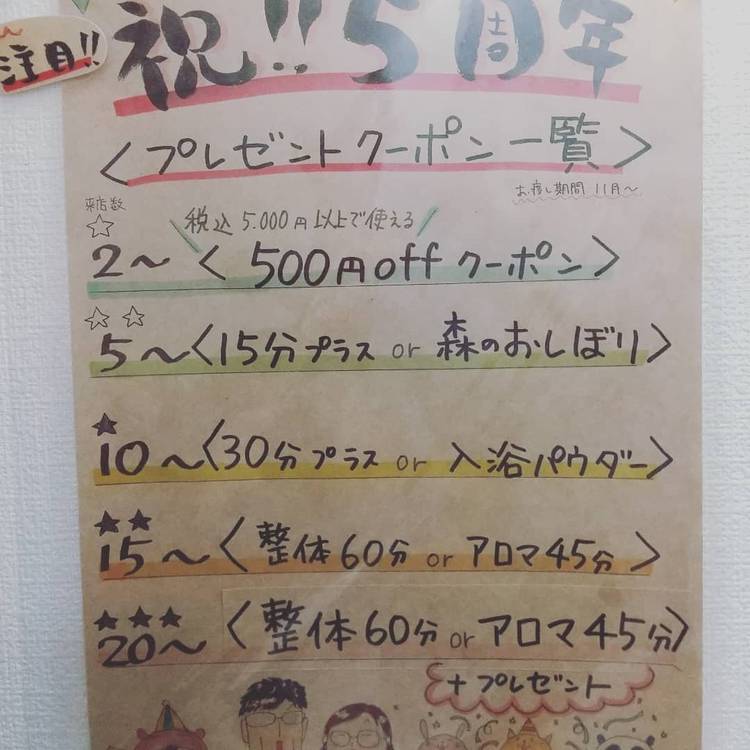 注目!!
祝!! 5周年
<プレゼントクーポン一覧>
お渡し期間 11月〜
来店数
税込 5.000円以上で使える
☆
2〜<500円offクーポン>
☆☆
5〜<15分プラス or 森のおしぼり>
★
10〜<30分プラス or 入浴パウダー>
★★
15〜<整体60分 or アロマ45分>
★★★
20〜<整体60分 or アロマ45分>
+プレゼント